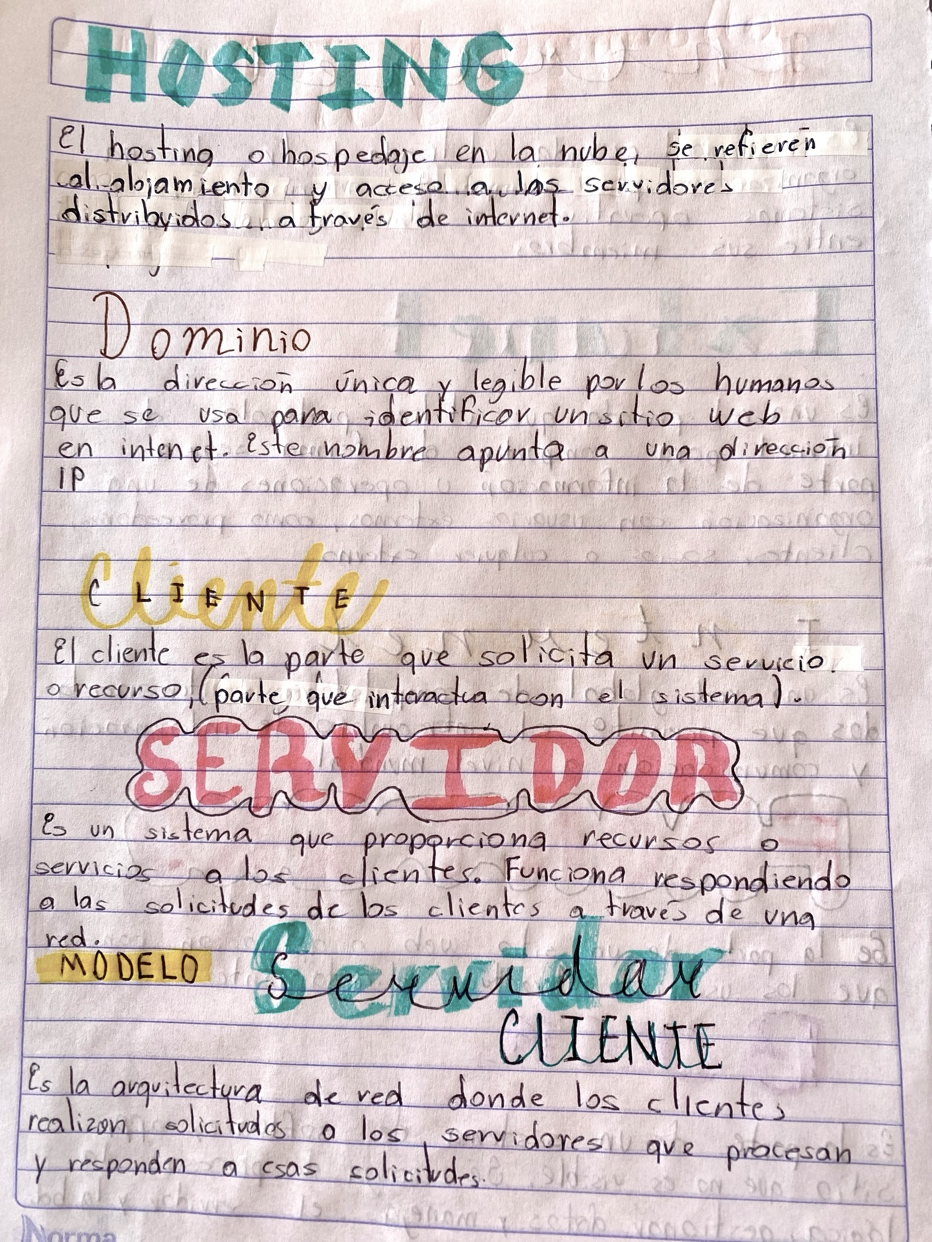 HOSTING
El hosting o hospedaje en la nube, se refieren
al alojamiento y acceso a los servidores
distribuidos a través de internet.
Dominio
Es la dirección única y legible por los humanos
que se usa para identificar un sitio web
en intenet. Este nombre apunta a una dirección
IP
Cliente
CLIENTE
El cliente es la parte que solicita un servicio
o recurso, (parte que interactua con el sistema).
SERVIDOR
Es un sistema que proporciona recursos o
servicios a los clientes. Funciona respondiendo
a las solicitudes de los clientes a través de una
red.
MODELO Servidor
CLIENTE
Es la arquitectura de red donde los clientes
realizan solicitudes a los servidores que procesan
y responden a esas solicitudes.
Norma